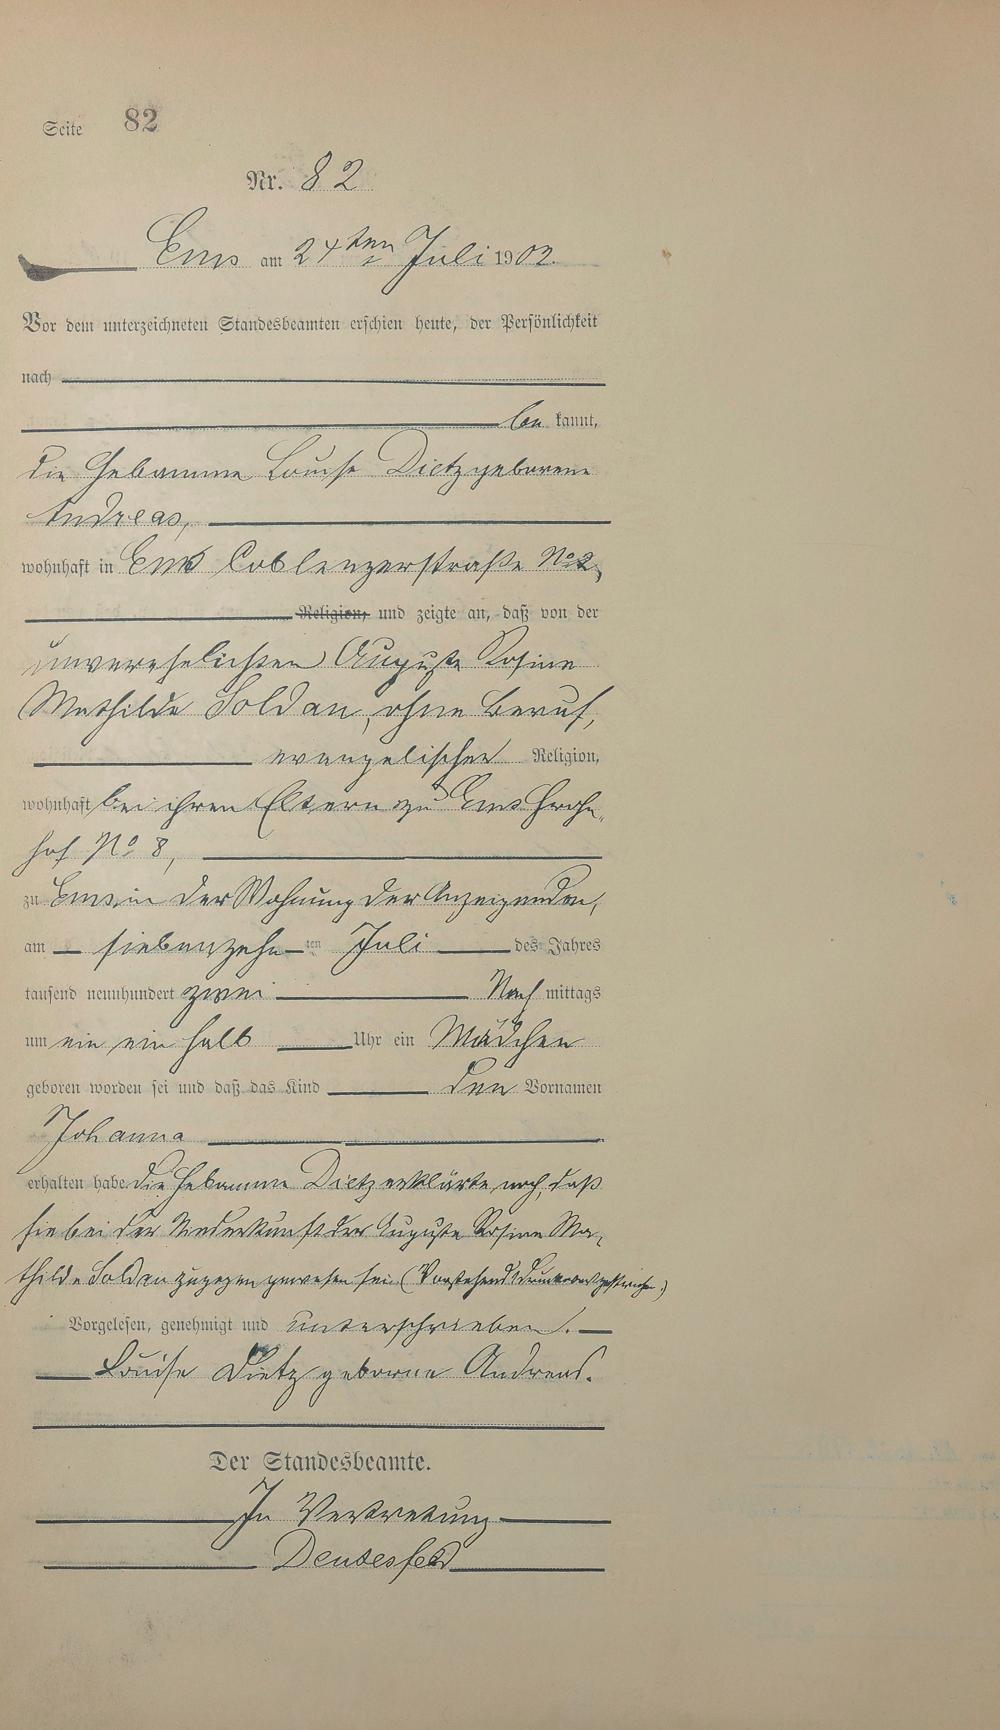 Seite 82
Nr. 82
Ems am 24ten Juli 1902.
Vor dem unterzeichneten Standesbeamten erschien heute, der Persönlichkeit
nach
be kannt,
die Hebamme Louise Dietz geborene
Andreas,
wohnhaft in Ems Coblenzerstraße No 2,
Religion, und zeigte an, daß von der
unverehelichten Auguste Rosine
Mathilde Soldan, ohne Beruf,
evangelischer Religion,
wohnhaft bei ihren Eltern zu Ems
hof No 8,
zu Ems in der Wohnung der Anzeigenden,
am siebenzehn ten Juli des Jahres
tausend neunhundert zwei Nach mittags
um ein ein halb Uhr ein Mädchen
geboren worden sei und daß das Kind den Vornamen
Johanna
erhalten habe Die Hebamme Dietz erklärte noch, daß
sie bei der Niederkunft der Auguste Rosine Ma-
thilde Soldan zugegen gewesen sei. (Vorstehend 1 Druckwort gestrichen.)
Vorgelesen, genehmigt und unterschrieben.
Louise Dietz geborne Andreas.
Der Standesbeamte.
In Vertretung